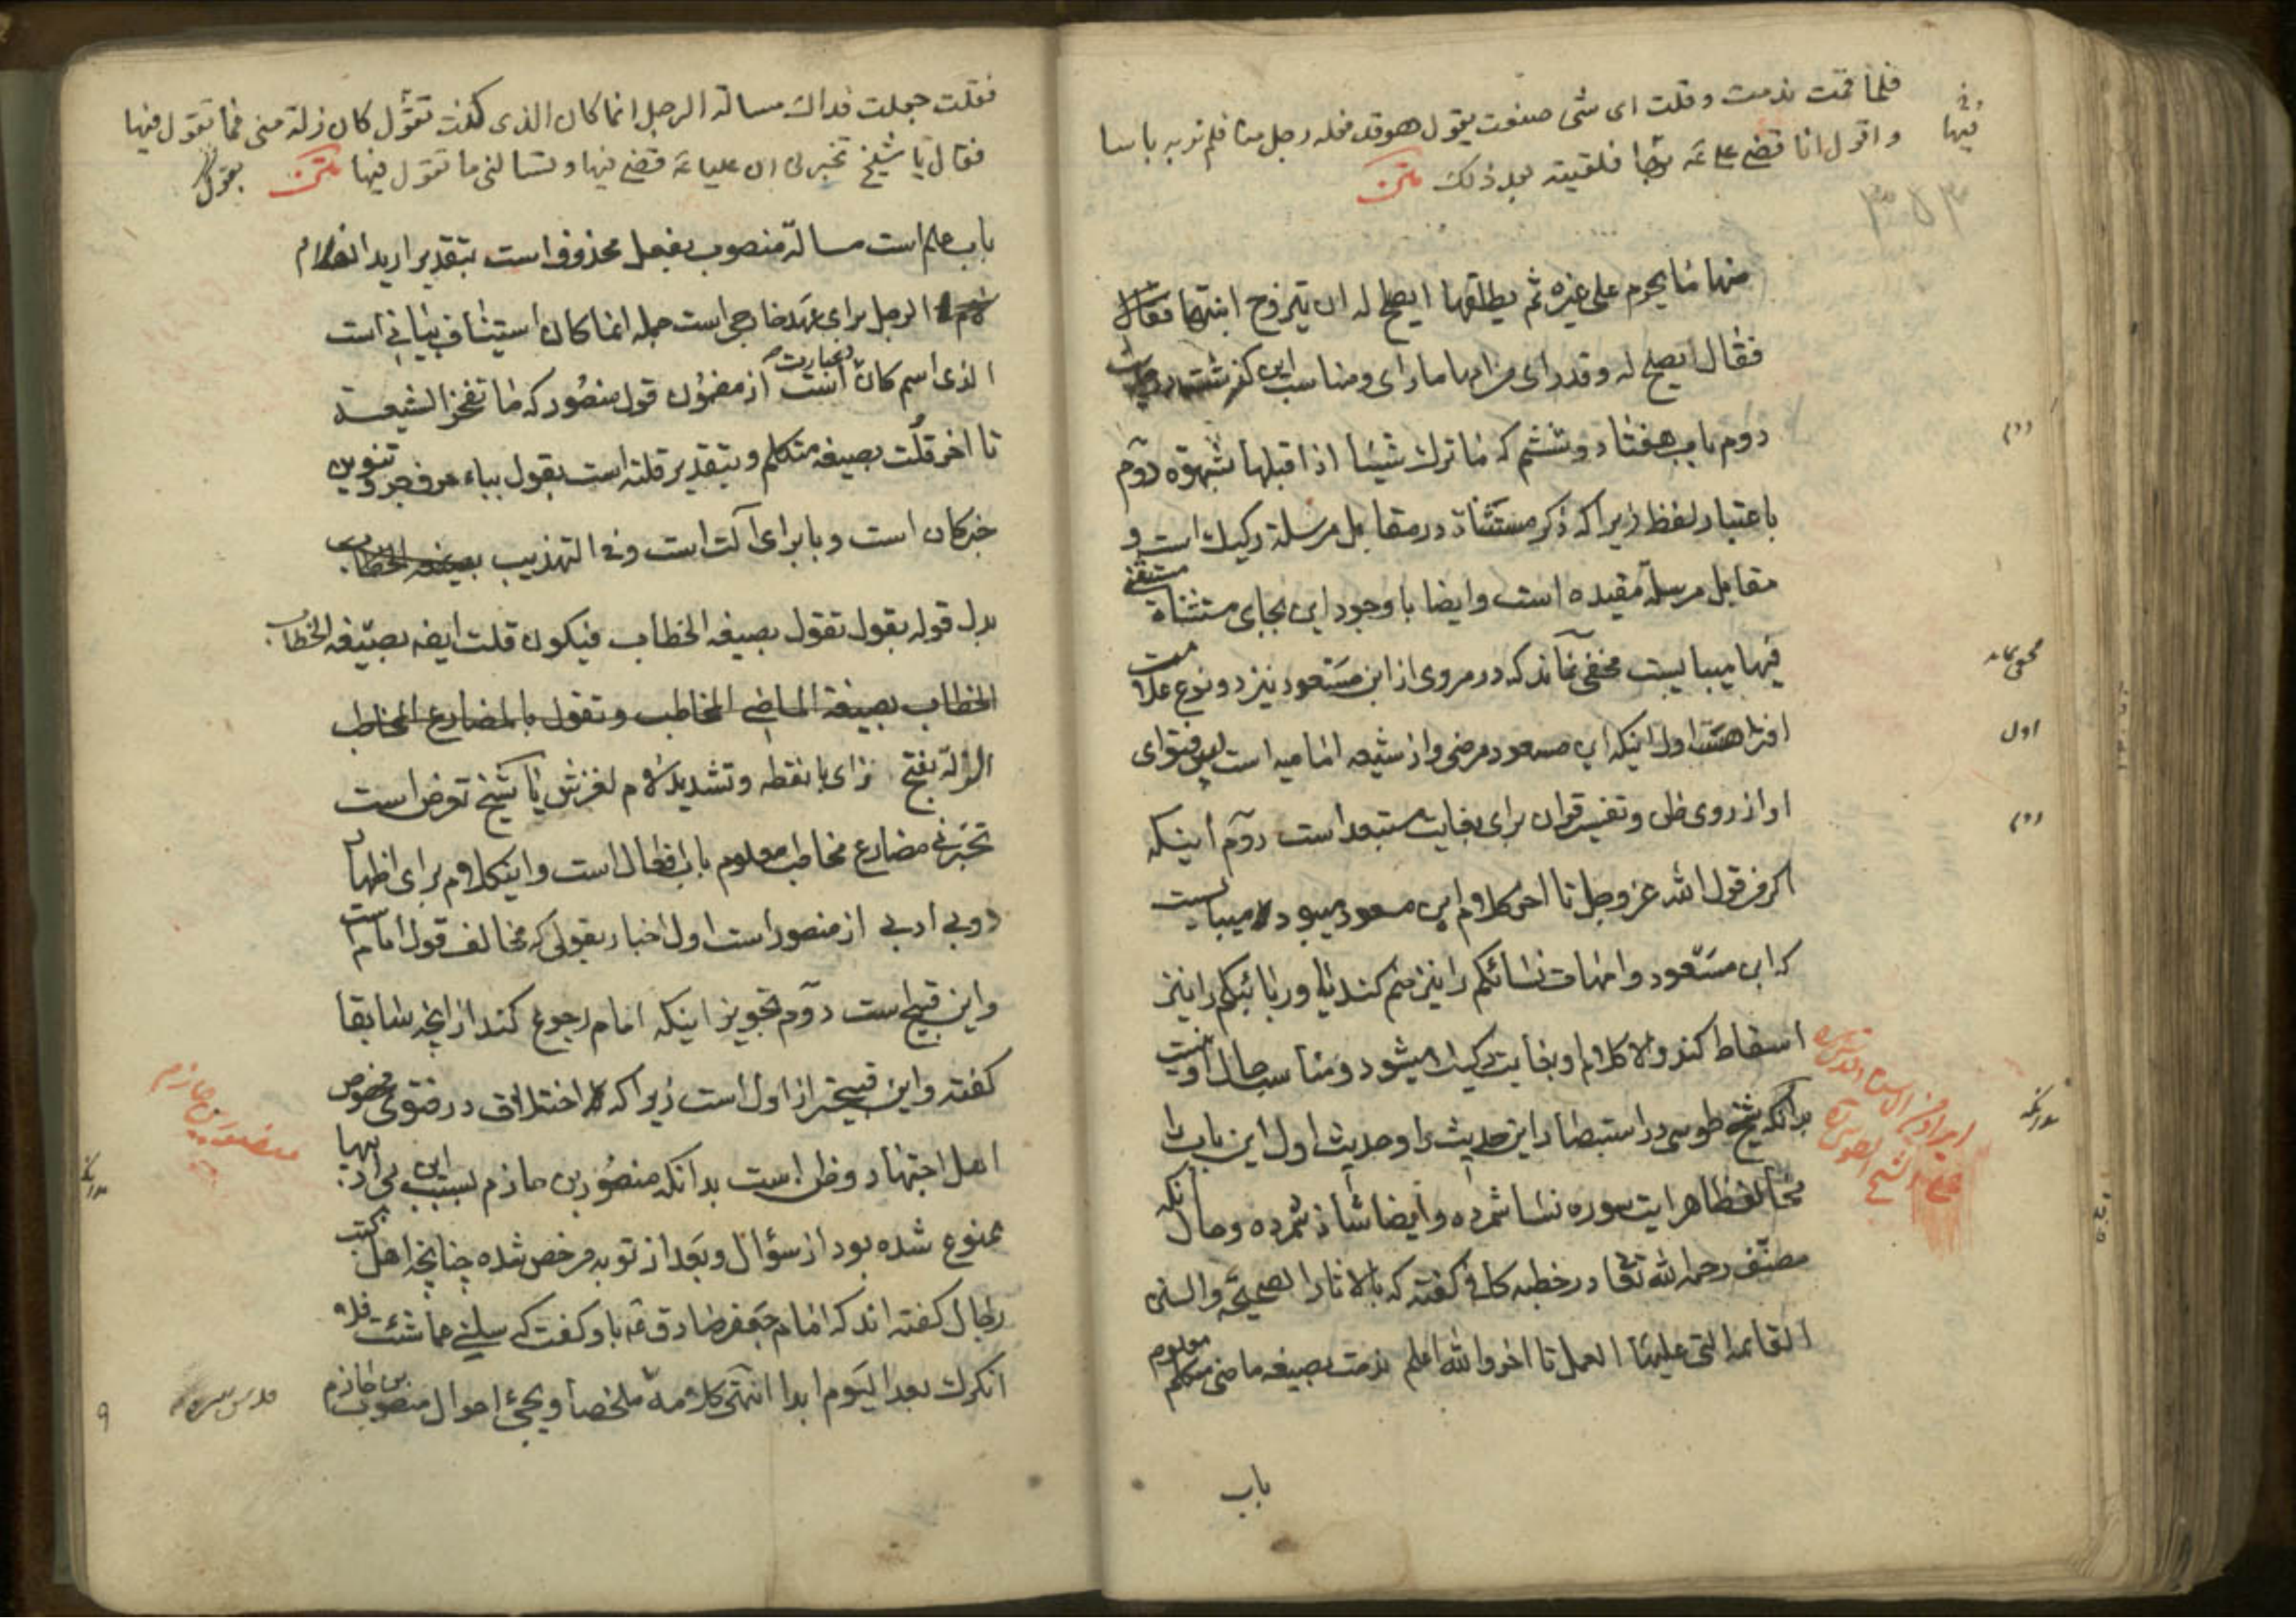 فلما قمت ندمت وقلت ای شی صنعت یقول هو قد فعله رجل منا فلم نر به باسا
واقول انا قضی علی عم فیها فلقیته بعد ذلک متن
فیها
منها ما یحرم علی غیره ثم یطلقها ایصلح له ان یتزوج ابنتها فقال
فقال ایصلح له وقد رای من امها ما رای ومناسب این گذشت در
دوم باب هفتاد وششم که ما ترک شیئا اذا قبلها بشهوة دوم
باعتبار لفظ زیرا که ذکر مستثناة در مقابل مرسلة رکیک است و
مقابل مرسله مقیده است وایضا با وجود این بجای مستثناة مستثنی
فیها میبایست مخفی نماند که در مروی از ابن مسعود نیز دو نوع علامت
افترا هست اول اینکه ابن مسعود مرضی واز شیعه امامیه است پس فتوای
او از روی ظن وتفسیر قران برای بغایت مستبعد است دوم اینکه
اکر من قول الله عز وجل تا اخر کلام ابن مسعود میبود لا میبایست
که ابن مسعود وامهات نسائکم را نیز ضم کند یا وربائبکم را نیز
اسقاط کند والا کلام او بغایت رکیک میشود ومناسب حال او نیست
بدانکه شیخ طوسی در استبصار این حدیث را وحدیث اول این باب را
مخالف ظاهر ایت سوره نسا شمرده وایضا شاذ شمرده وحال آنکه
مصنف رحمه الله تعالی در خطبه کافی کفته که بالاثار الصحیحة والسنن
القائمه التی علیها العمل تا اخر والله اعلم ندمت بصیغه ماضی متکلم معلوم
باب
دوم
مخفی نماند
اول
دوم
بدانکه
علی الشیخ الطوسی
فقلت جعلت فداک مسالة الرجل انما کان الذی کنت تقول کان زلة منی فما تقول فیها
فقال یا شیخ تخبرنی ان علیا عم قضی فیها وتسالنی ما تقول فیها متن یقول
باب علم است مسالة منصوب بفعل محذوف است بتقدیر ارید
الرجل برای عهد خارجی است جمله انما کان استیناف بیانی است
الذی اسم کان است بعبارت از مضمون قول منصور که ما تفخر الشیعة
تا اخر قلت بصیغه متکلم وبتقدیر قلته است بقول بباء حرف جر وتنوین
خبر کان است وبا برای آلت است وفی التهذیب بصیغه الخطاب
بدل قوله بقول تقول بصیغه الخطاب فیکون قلت ایضه بصیغه الخطاب
الخطاب بصیغة الماضی المخاطب وتقول بالمضارع المخاطب
الزلة بفتح زای با نقطه وتشدید لام لغزش یا شیخ تعرض است
تخبرنی مضارع مخاطب معلوم باب افعال است واینکلام برای اظهار
دو بی ادبی از منصور است اول اخبار بقولی که مخالف قول امام است
واین قبیح است دوم تجویز اینکه امام رجوع کند از انچه سابقا
کفته واین قبیحتر از اول است زیرا که اختلاف در فتوی مخصوص
اهل اجتهاد وظن است بدانکه منصور بن حازم بسبب این بی ادبیها
ممنوع شده بود از سؤال وبعد از توبه مرخص شده چنانچه اهل کتب
رجال کفته اند که امام جعفر صادق عم باو کفت که سلنی عما شئت فلا
انکرک بعد الیوم ابدا انتهی کلامه ملخصا ویجئ احوال منصور بن حازم
منصور بن حازم
بدانکه
۹